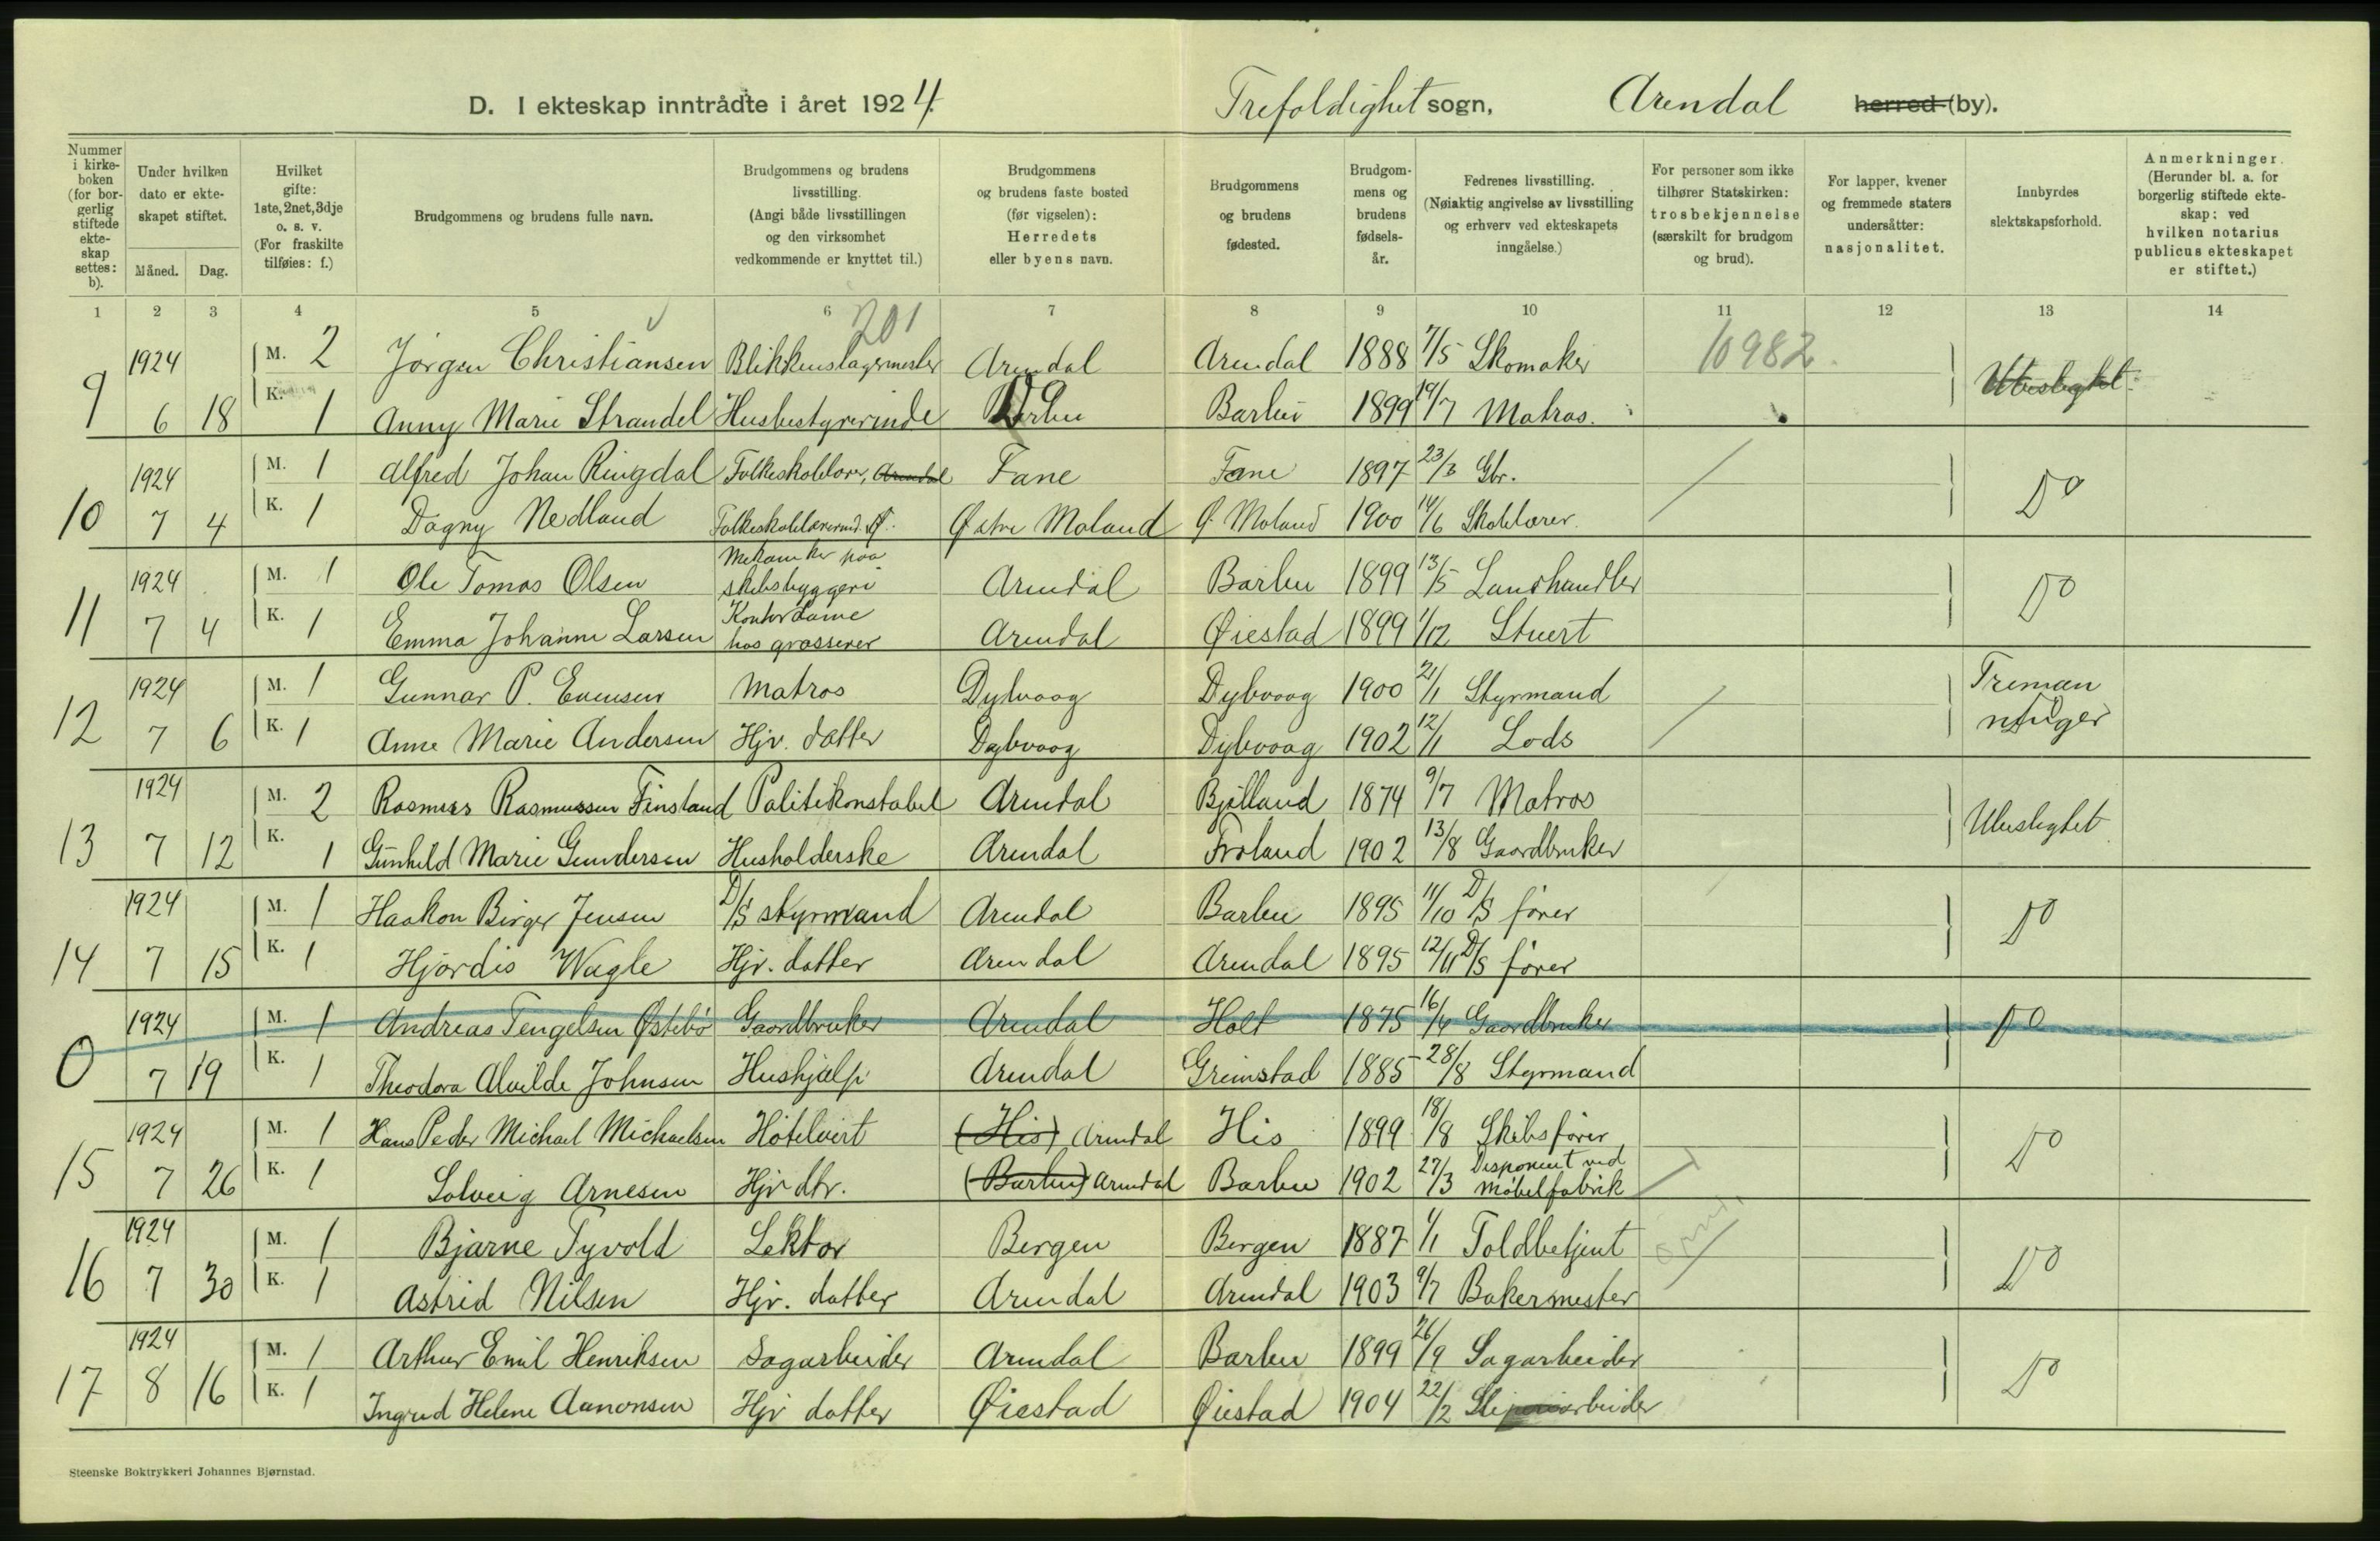 D. I ekteskap inntrådte i året 1924.
Trefoldighet sogn, Arendal herred (by).
Nummer i kirkeboken (for borgerlig stiftede ekteskap settes: b).
Under hvilken dato er ekteskapet stiftet.
Måned. Dag.
Hvilket gifte: 1ste, 2net, 3dje o. s. v. (For fraskilte tilføies: f.)
Brudgommens og brudens fulle navn.
Brudgommens og brudens livsstilling. (Angi både livsstillingen og den virksomhet vedkommende er knyttet til.)
Brudgommens og brudens faste bosted (før vigselen): Herredets eller byens navn.
Brudgommens og brudens fødested.
Brudgommens og brudens fødselsår.
Fedrenes livsstilling. (Nøiaktig angivelse av livsstilling og erhverv ved ekteskapets inngåelse.)
For personer som ikke tilhører Statskirken: trosbekjennelse (særskilt for brudgom og brud).
For lapper, kvener og fremmede staters undersåtter: nasjonalitet.
Innbyrdes slektskapsforhold.
Anmerkninger. (Herunder bl. a. for borgerlig stiftede ekteskap: ved hvilken notarius publicus ekteskapet er stiftet.)
1 2 3 4 5 6 7 8 9 10 11 12 13 14
201
1924 M. 2 Jörgen Christiansen Blikkenslagermester Arendal Arendal 1888 7/5 Skomaker 10982
9 6 18 K. 1 Anny Marie Strandel Husbestyrerinde Barbu Barbu 1899 19/7 Matros. Ubeslegtet
1924 M. 1 Alfred Johan Ringdal Folkeskolelærer, Arendal Fane Fane 1897 23/3 Gbr.
10 7 4 K. 1 Dagny Nedland Folkeskolelærerind. Ø. Østre Moland Ø. Moland 1900 14/6 Skolelærer. Do
1924 M. 1 Ole Tomas Olsen Mekaniker paa skibsbyggeri Arendal Barbu 1899 13/5 Landhandler
11 7 4 K. 1 Emma Johanne Larsen Kontordame hos grosserer Arendal Øiestad 1899 1/12 Stuert Do
1924 M. 1 Gunnar P. Evensen Matros Dybvaag Dybvaag 1900 21/1 Styrmand Tremenninger
12 7 6 K. 1 Anne Marie Andersen Hjv. datter Dybvaag Dybvaag 1902 12/1 Lods
1924 M. 2 Rasmus Rasmussen Finsland Politikonstabel Arendal Bjelland 1874 9/7 Matros
13 7 12 K. 1 Gunhild Marie Gundersen Husholderske Arendal Froland 1902 13/8 Gaardbruker Ubeslegtet
1924 M. 1 Haakon Birger Jensen D/S styrmand Arendal Barbu 1895 11/10 D/S fører
14 7 15 K. 1 Hjördis Wagle Hjv. datter Arendal Arendal 1895 12/11 D/S fører Do
1924 M. 1 Andreas Tengelsen Østebö Gaardbruker Arendal Holt 1875 16/4 Gaardbruker Do
0 7 19 K. 1 Theodora Alvilde Johnsen Hushjælp Arendal Grimstad 1885 28/8 Styrmand
1924 M. 1 Hans Peder Michael Michaelsen Hotelvert (His) Arendal His 1899 18/8 Skibsfører
15 7 26 K. 1 Solveig Arnesen Hjv dtr. (Barbu) Arendal Barbu 1902 27/3 Disponent ved møbelfabrik Do
1924 M. 1 Bjarne Tyvold Lektor Bergen Bergen 1887 1/1 Toldbetjent
16 7 30 K. 1 Astrid Nilsen Hjv. datter Arendal Arendal 1903 9/7 Bakermester Do
1924 M. 1 Arthur Emil Henriksen Sagarbeider Arendal Barbu 1899 26/9 Sagarbeider
17 8 16 K. 1 Ingrid Helene Aanonsen Hjv datter Øiestad Øiestad 1904 22/2 Do
Steenske Boktrykkeri Johannes Bjørnstad.